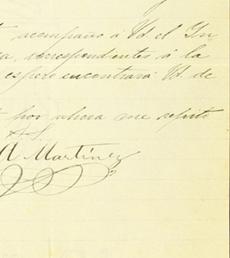 acompaño á Vd el In
correspondientes á la
espero encontrará Vd de
por ahora me repito
A Martínez